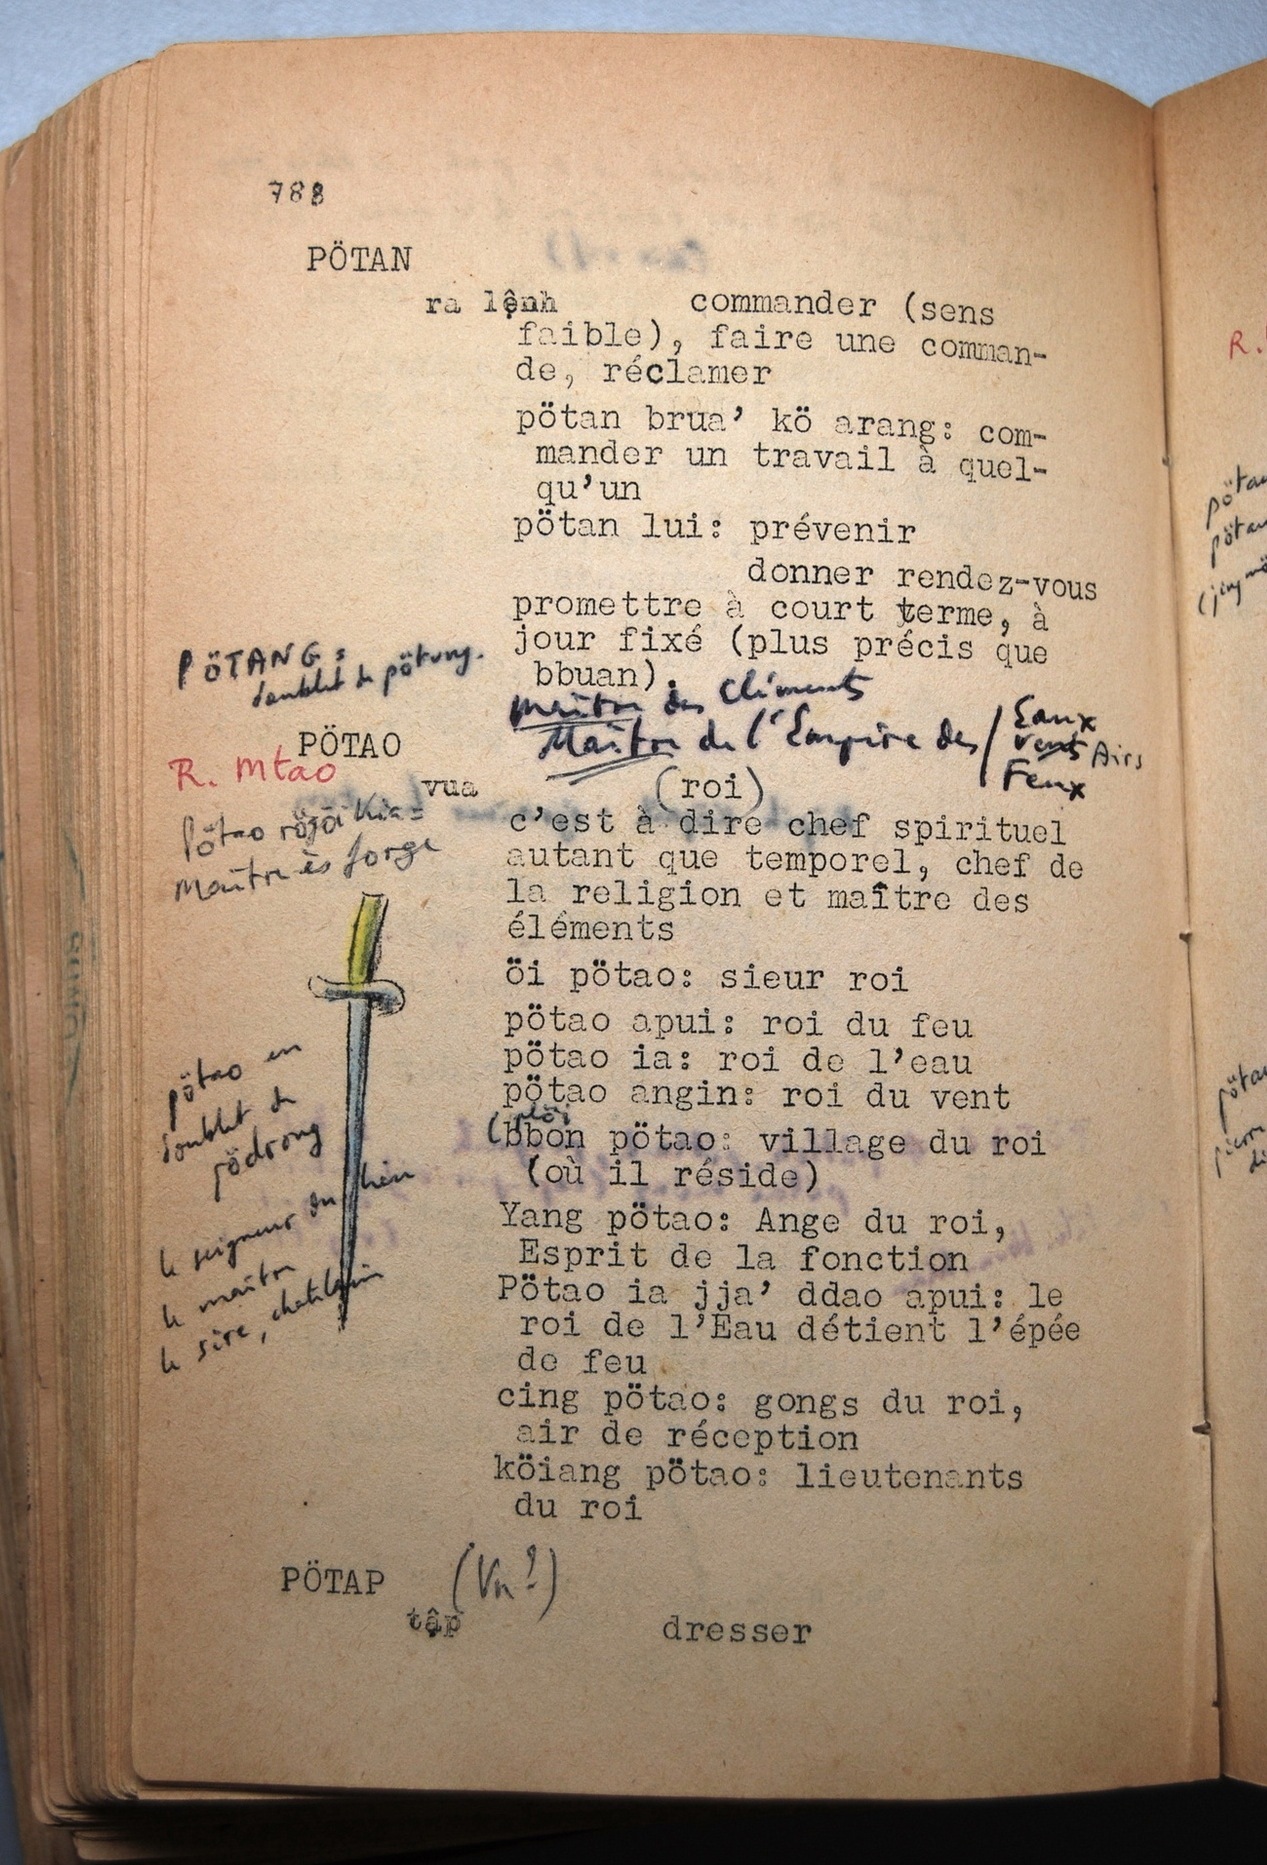 788
PÖTAN
ra lệnh commander (sens
faible), faire une comman-
de, réclamer
pötan brua’ kö arang: com-
mander un travail à quel-
qu’un
pötan lui: prévenir
donner rendez-vous
promettre à court terme, à
jour fixé (plus précis que
bbuan).
PÖTANG:
doublet de pötung.
Maître des Eléments
Maître de l’Empire des Eaux
vents Airs
Feux
PÖTAO
R. Mtao
vua (roi)
Pötao =
Maître ès forge
c’est à dire chef spirituel
autant que temporel, chef de
la religion et maître des
éléments
öi pötao: sieur roi
pötao apui: roi du feu
pötao ia: roi de l’eau
pötao angin: roi du vent
(plöi
bbon pötao: village du roi
(où il réside)
Yang pötao: Ange du roi,
Esprit de la fonction
Pötao ia jja’ ddao apui: le
roi de l’Eau détient l’épée
de feu
cing pötao: gongs du roi,
air de réception
köiang pötao: lieutenants
du roi
pötao en
doublet de
pödrong
le seigneur du lieu
le maître
le sire, chatelain
PÖTAP (Vn?)
tập dresser
R.
pötao